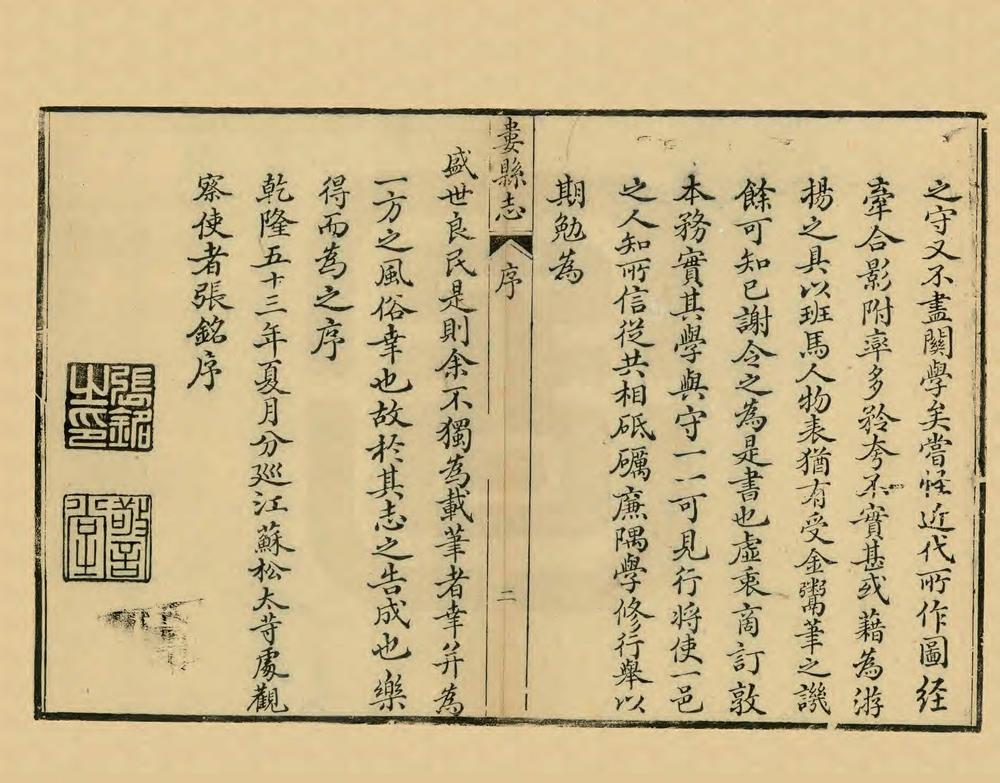 之守又不盡關學矣嘗怪近代所作圖经
牽合影附率多矜夸不實甚或藉為游
揚之具以班馬人物表猶有受金鬻筆之譏
餘可知已謝令之為是書也虛衷商訂敦
本務實其學與守一一可見行將使一邑
之人知所信從共相砥礪廉隅學修行舉以
期勉為
婁縣志
序
二
盛世良民是則余不獨為載筆者幸并為
一方之風俗幸也故於其志之告成也樂
得而為之序
乾隆五十三年夏月分廵江蘇松太等處觀
察使者張銘序
張銘之印
敬言堂